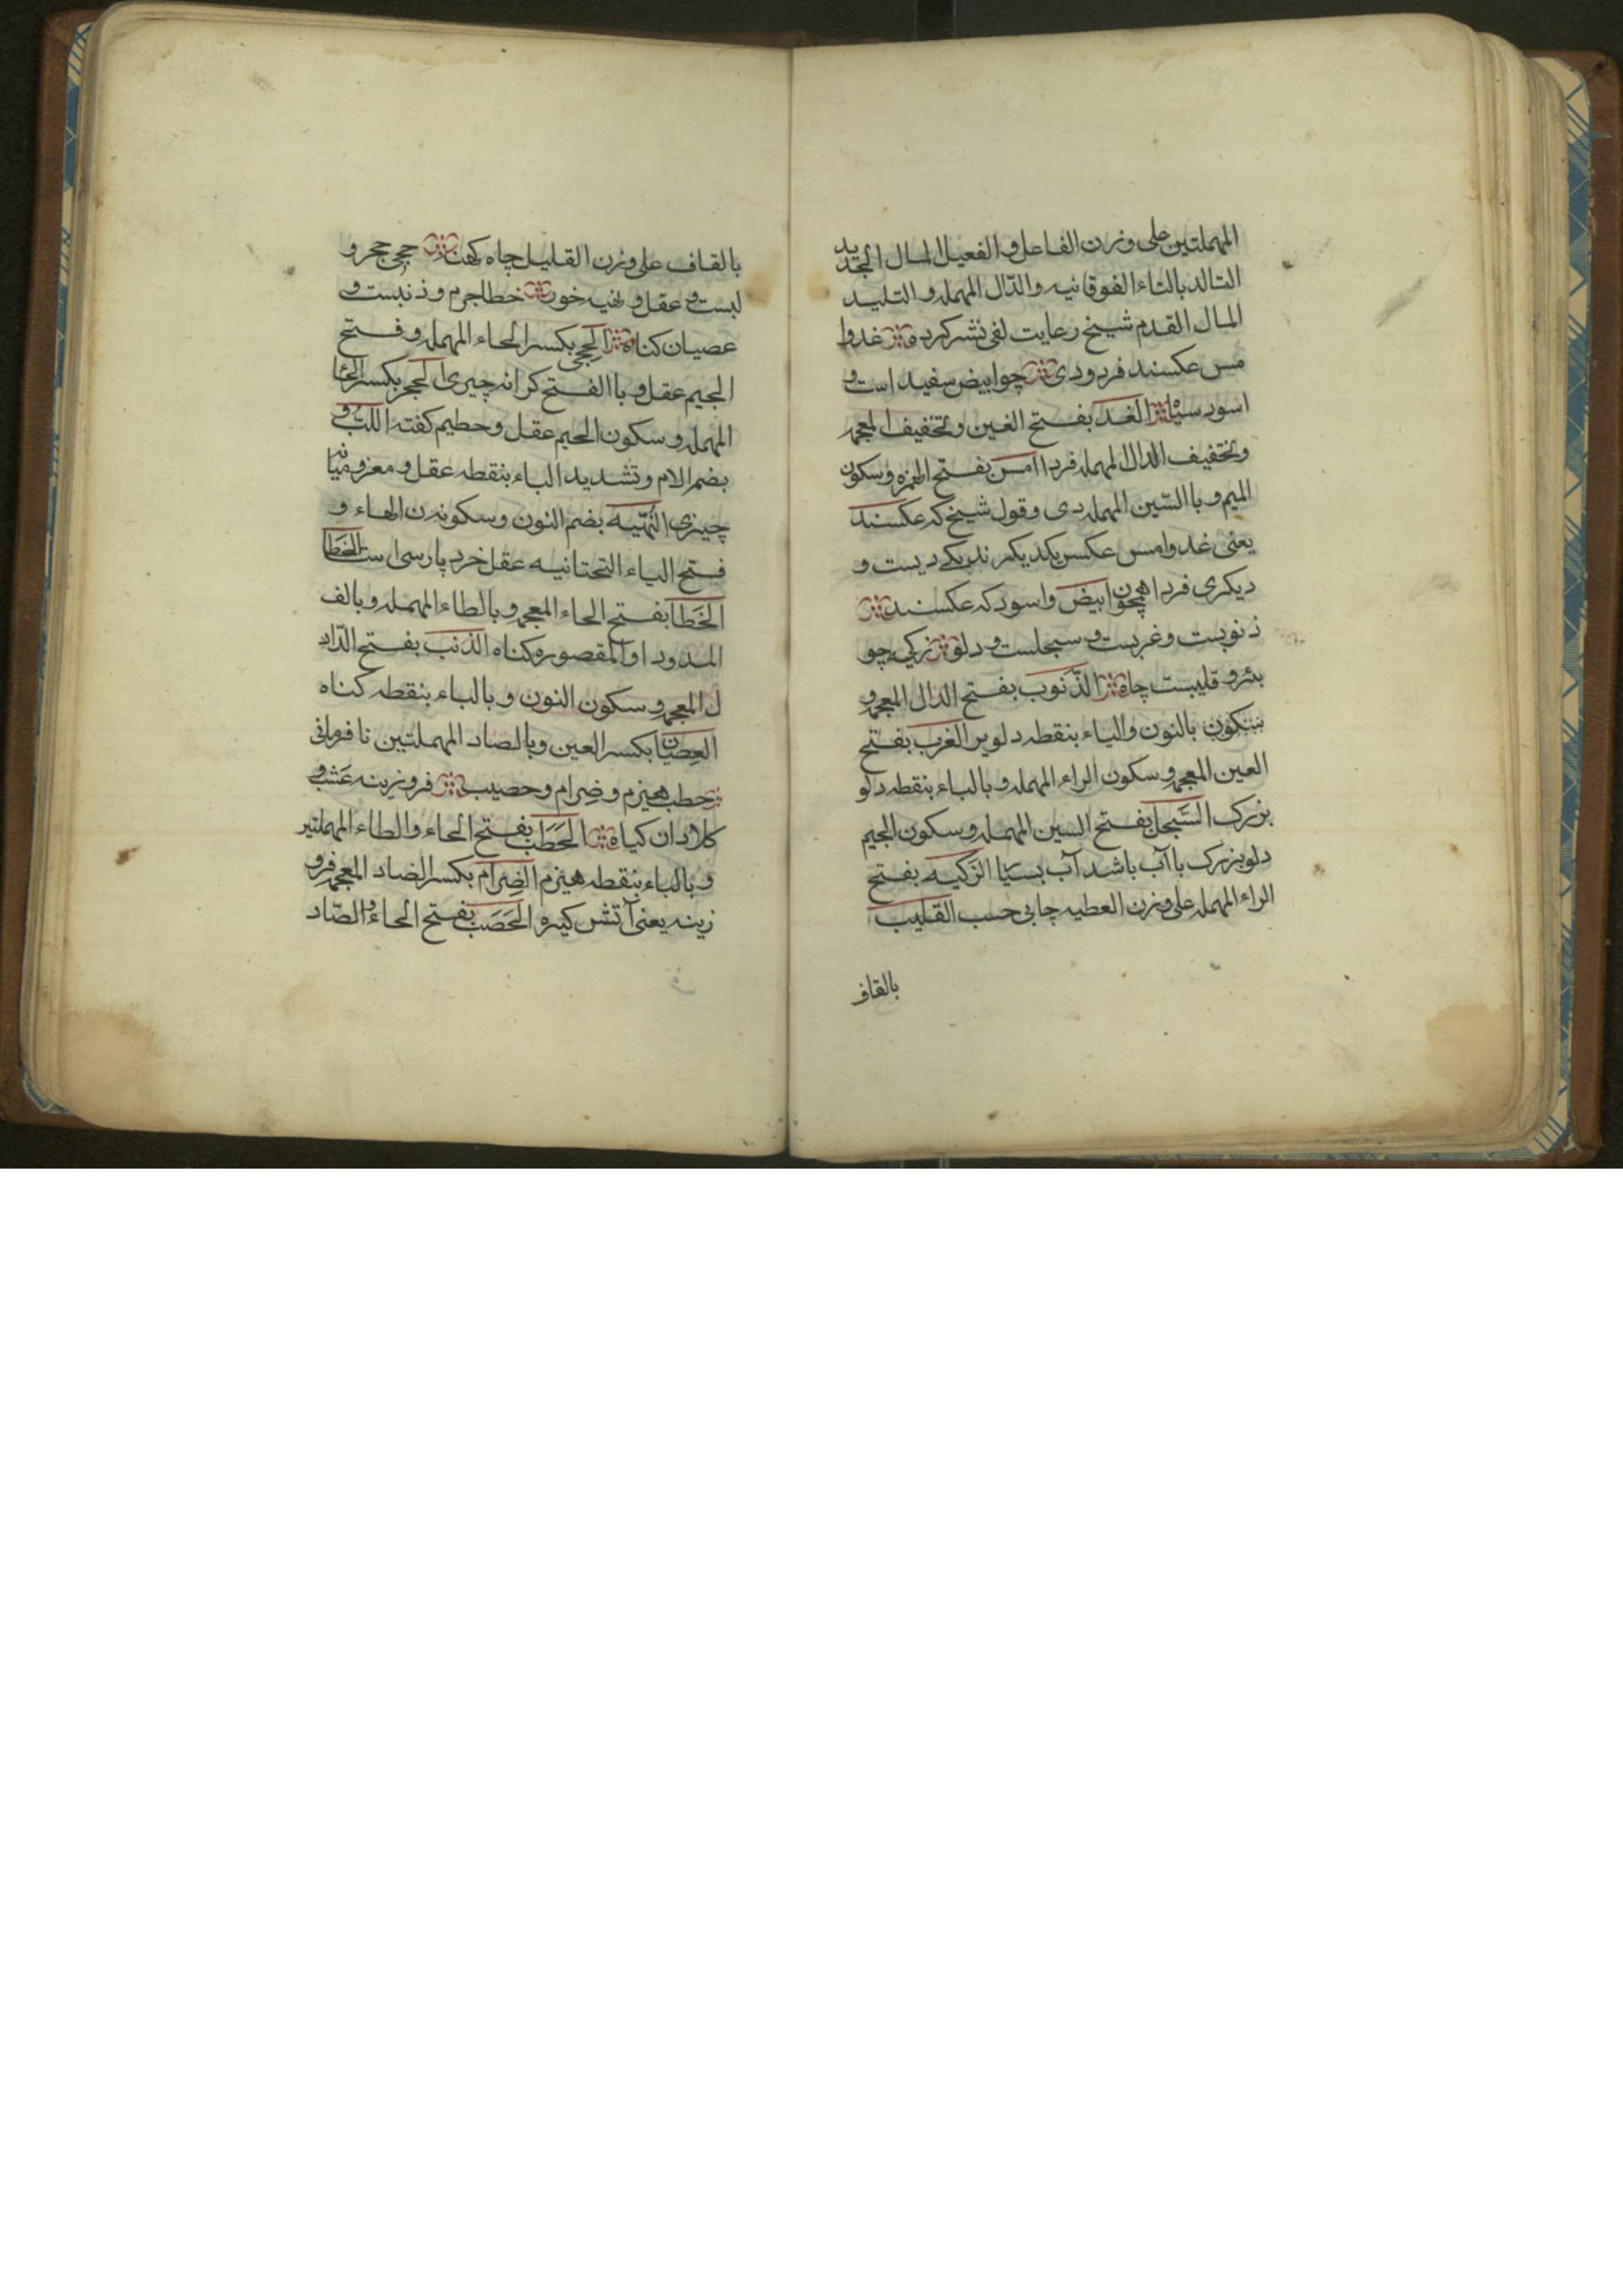 المهملتین علی وزن الفاعل و الفعیل المال الجدید
التالد بالتاء الفوقانیه والدّال المهمله و التلید
المال القدم شیخ رعایت لفی نشر کرده غدوا
مس عکسند فردودی چوابیض سفید است و
اسود سیاه الغد بفتح الغین و تخفیف المعجمه
وتخفیف الدال المهمله فردا امس بفتح الهمزه وسکون
المیم و باالسّین المهمله دی وقول شیخ که عکسند
یعنی غد وامس عکس یکدیکرند یکی دیست و
دیکری فردا همچون ابیض واسود که عکسند
ذنوبست وغربست و سجلست و دلو زکیه چو
بئرو قلیبست چاه الذّنوب بفتح الذال المعجمه و
بالنون والباء بنقطه دلو پر الغرب بفتح
الغین المعجمه و سکون الراء المهمله و بالباء بنقطه دلو
بزرک السَّجل بفتح السین المهمله و سکون الجیم
دلو بزرک باآب باشد آب بسیا الزکیه بفتح
الراء المهمله علی وزن العطیه چاهی القلیب
بالقاف
بالقاف علی وزن القلیل چاه کهنه حجی حجر و
لبست و عقل و نهیه خون خطا جرم و ذنبست و
عصیان کناه الحِجی بکسر الحاء المهمله و فتح
الجیم عقل و باالفتح کرانه چیزی الحجر بکسر الحا
المهمله و سکون الجیم عقل و حطیم کفته اللبّ و
بضم الام و تشدید الباء بنقطه عقل و مغزو میانه
چیزی النُهیه بضم النون و سکونه ن الهاء و
فتح الیاء التحتانیه عقل خرد پارسی است الخطا
الخَطا بفتح الحاء المعجمه و بالطاء المهمله و بالف
المدود او المقصوره کناه الذنب بفتح الذّا
ل المعجمه و سکون النون و بالباء بنقطه کناه
العِصیان بکسر العین وبالصاد المهملتین نافرمانی
حطب هیزم و ضِرام و حصیب فروزینه عَشب و
کلا دان کیاه الحَطَب بفتح الحاء والطاء المهملتیر
و بالباء بنقطه هیزم الضِرام بکسر الضاد المعجمه فرو
زینه یعنی آتش کیره الحَصَب بفتح الحاء و الصّاد